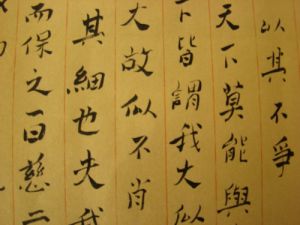 以其不爭
天下莫能與
下皆謂我大似
大故似不肖
其細也夫我
而保之一曰慈二